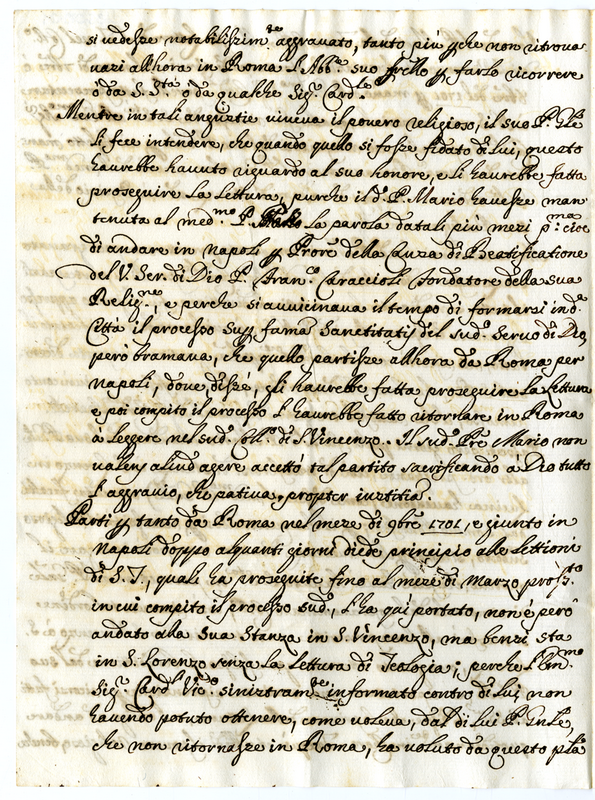 si vedesse notabilissim.te aggravato, tanto più p che non ritrova
vasi all'hora in Roma l'Abb.e suo frello p farlo ricorrere
ò da S. S.tà ò da qualche Sig.r Card.le
Mentre in tali angustie viveva il povero religioso, il suo P. G.le
li fece intendere, che quando quello si fosse fidato di lui, questo
haurebbe havuto riguardo al suo honore, e li haurebbe fatta
proseguire la lettura, purche il d.o P. Mario havesse man
tenuta al med.mo P. la parola datali più mesi p.ma cioè
di andare in Napoli p Prore della Causa di Beatificatione
del V. Ser. di Dio P. Fran.co Caraccioli fondatore della sua
Relig.ne, e perche si avvicinava il tempo di formarsi in d.a
Città il processo Sup fama Sanctitatis del sud.o Servo di Dio,
però bramava, che quello partisse all'hora da Roma per
Napoli, dove disse, gli haurebbe fatta proseguire la lettura
e poi compito il processo l'haurebbe fatto ritornare in Roma
à leggere nel sud.o Coll.o di S. Vincenzo. Il sud.o Pre Mario non
valens aliud agere accettò tal partito sacrificando à Dio tutto
l'aggravio, che pativa, propter iustitiã.
Partì p tanto da Roma nel mese di 9bre 1701, e giunto in
Napoli doppo alquanti giorni diede principio alle lettioni
di S. T., quali ha proseguite fino al mese di Marzo pros.to
in cui compito il processo sud.o, l'ha quì portato, non è però
andato alla sua stanza in S. Vincenzo, ma bensì sta
in S. Lorenzo senza la lettura di Teologia; perche l'Em.mo
Sig.r Card.l Vic.o sinistram.te informato contro di lui, non
havendo potuto ottenere, come voleva, dal di lui P. Gnle,
che non ritornasse in Roma, ha voluto da questo